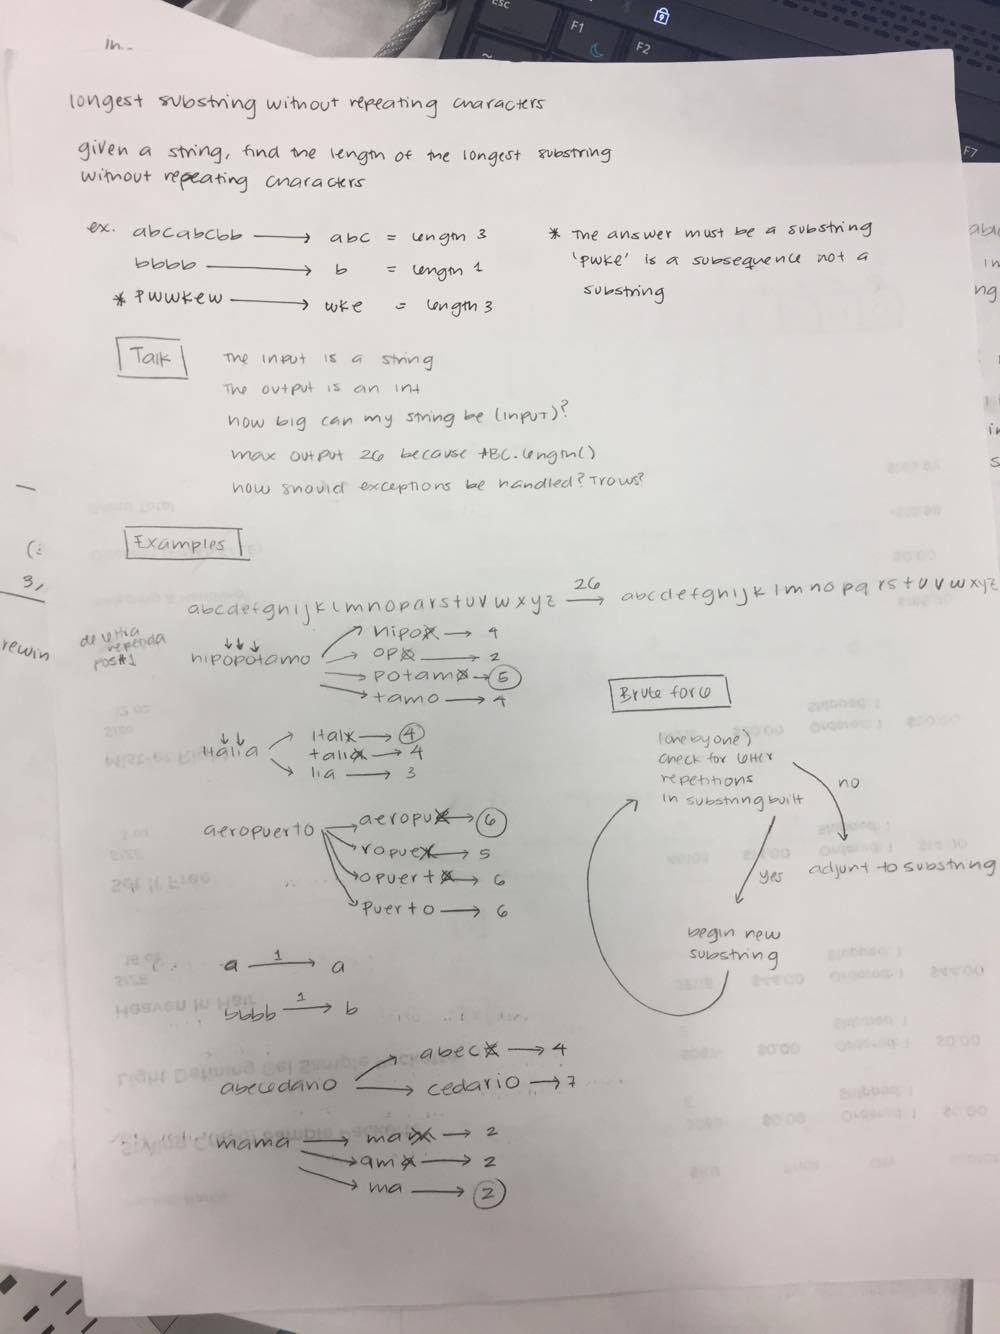 longest substring without repeating characters
given a string, find the length of the longest substring
without repeating characters
ex. abcabcbb → abc = length 3
bbbb → b = length 1
* pwwkew → wke = length 3
* The answer must be a substring
'pwke' is a subsequence not a
substring
Talk
The input is a string
The output is an int
how big can my string be (input)?
max output 26 because ABC.length()
how should exceptions be handled? Trows?
Examples
abcdefghijklmnopqrstuvwxyz 26 → abcdefghijklmnopqrstuvwxyz
de letra
repetida
pos+1
hipopotamo
hipo → 4
op → 2
potam → 5
tamo → 4
italia
ital → 4
tali → 4
lia → 3
aeropuerto
aeropu → 6
ropue → 5
opuert → 6
puerto → 6
a 1 → a
bbbb 1 → b
abecedario
abec → 4
cedario → 7
mama
ma → 2
am → 2
ma → 2
Brute force
(one by one)
check for letter
repetitions
in substring built
no
adjunt to substring
yes
begin new
substring
esc
F1
F2
F7
rewin
3,
in